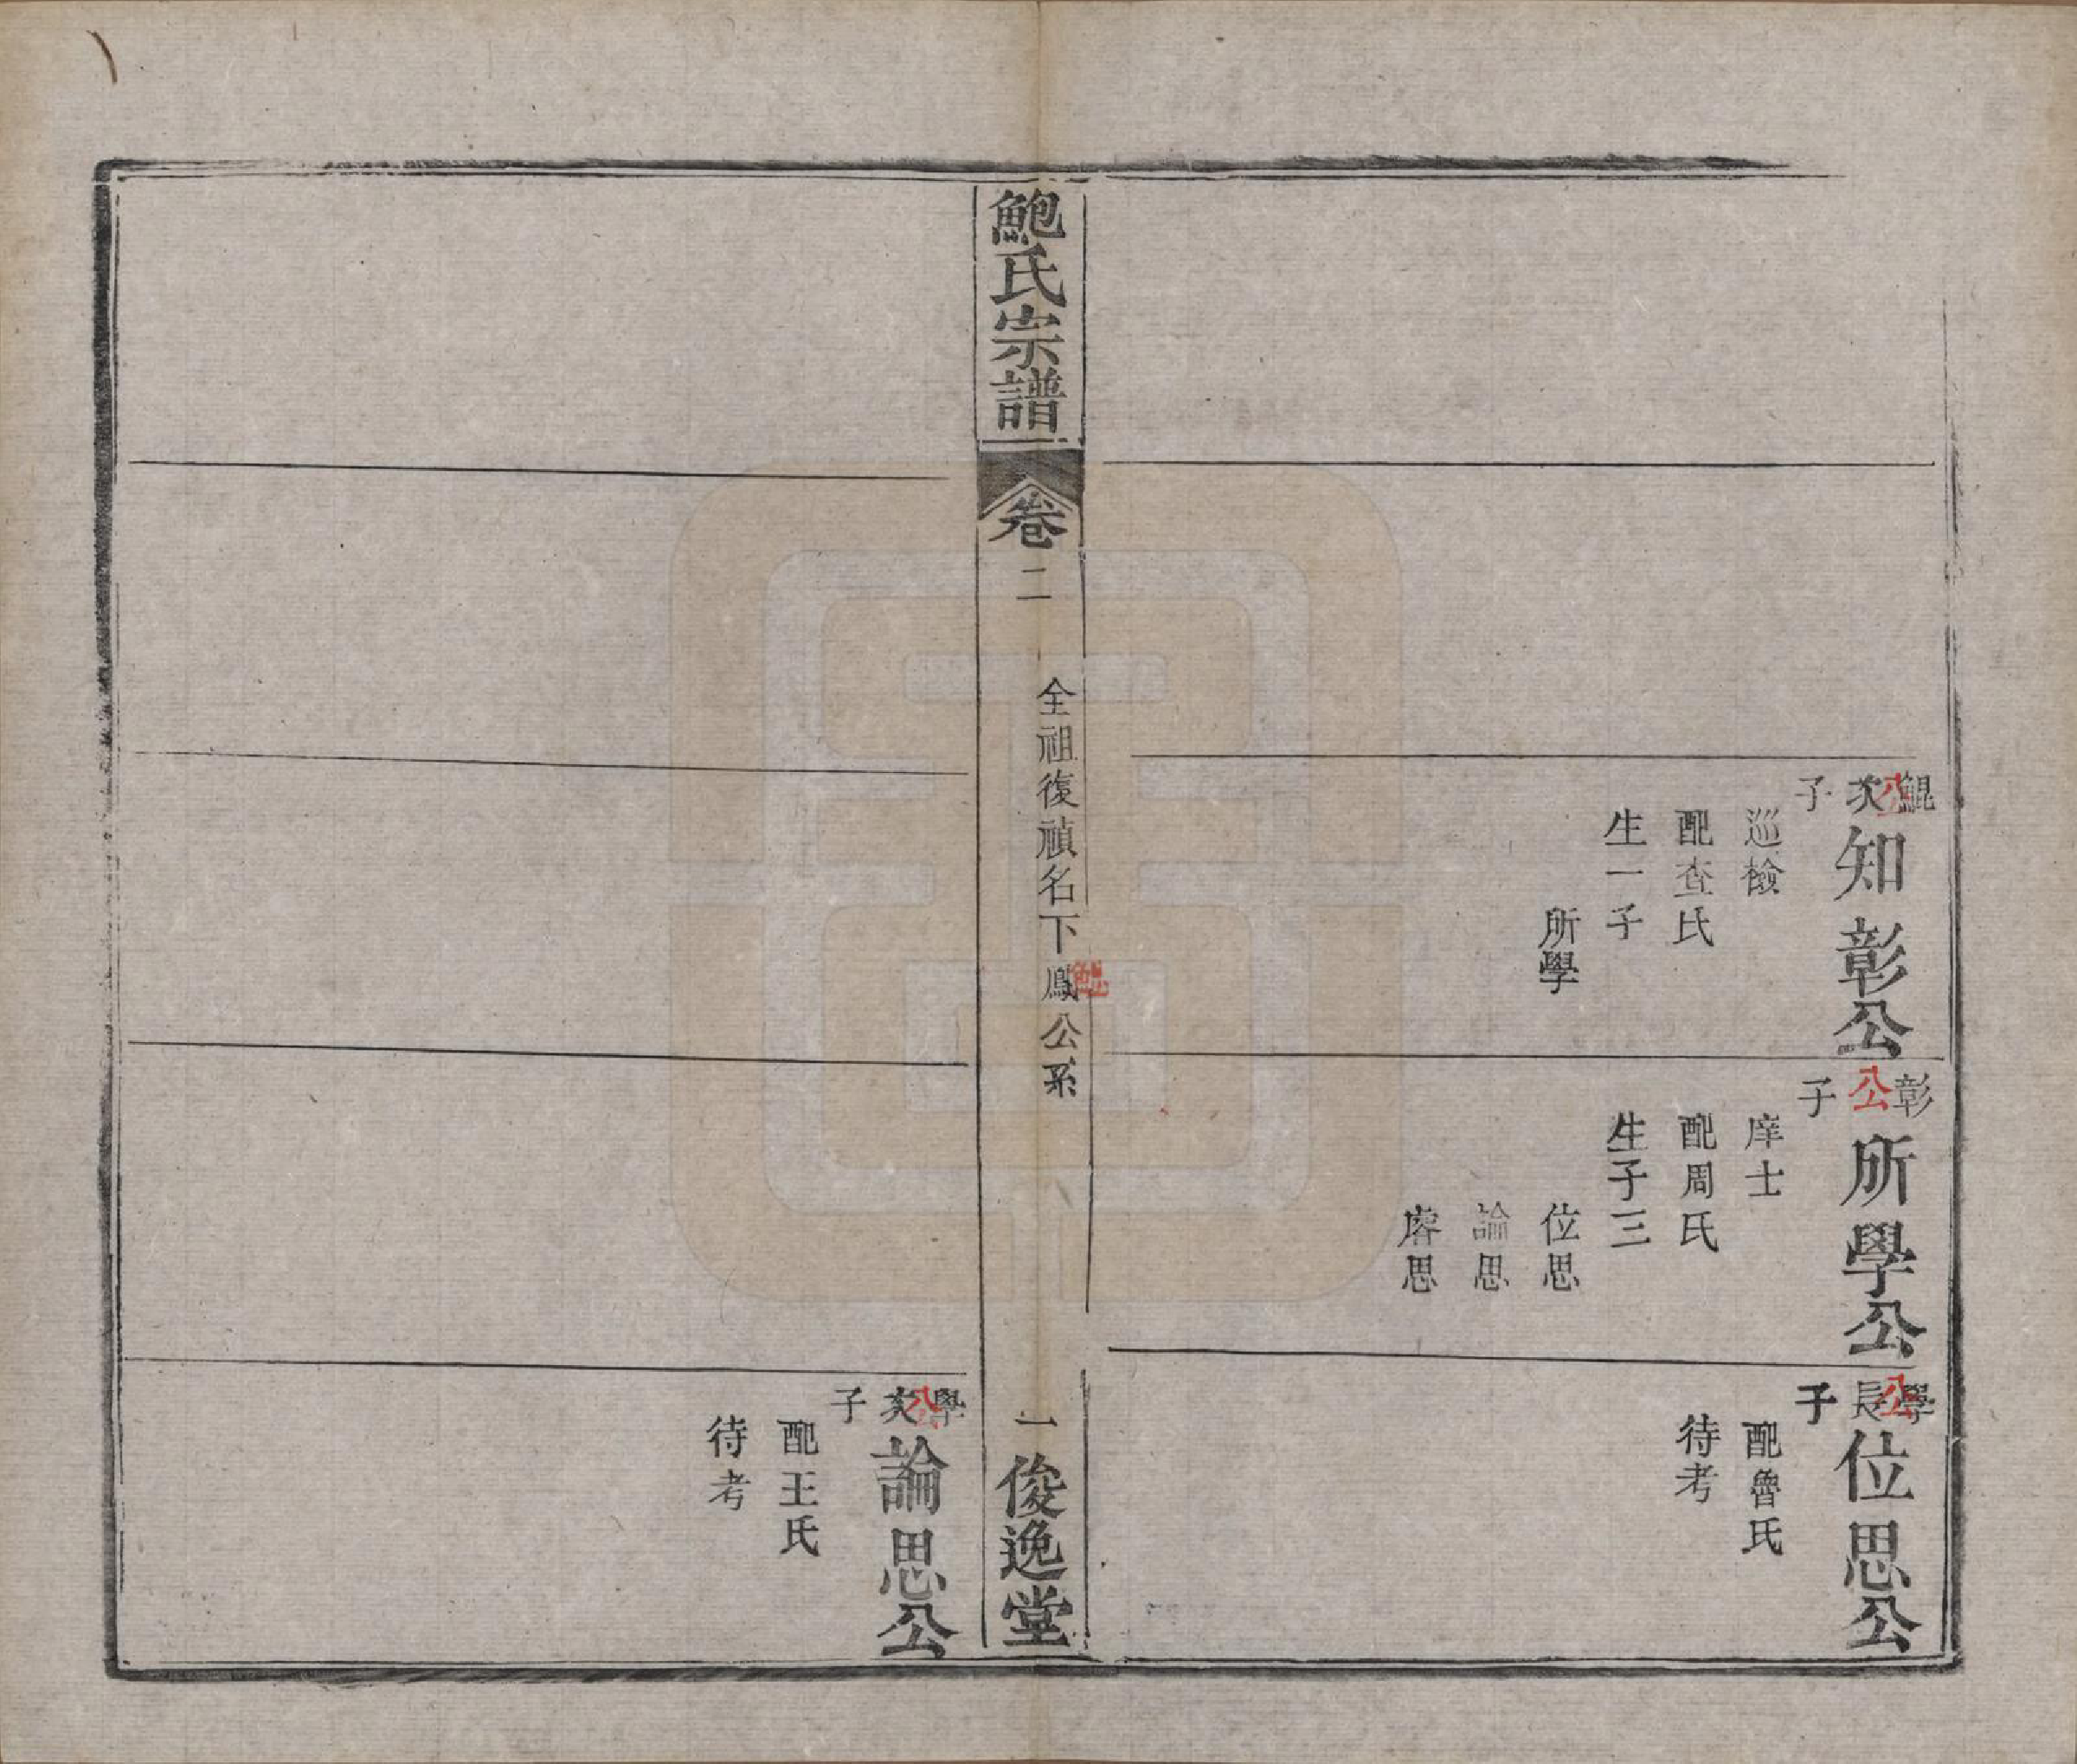 鯤公次子
知彰公
巡檢
配查氏
生一子
所學
彰公子
所學公
庠士
配周氏
生子三
位思
論思
睿思
學公長子
位思公
配魯氏
待考
鮑氏宗譜
卷二
全祖復禎名下鳳公系
鯤
一
俊逸堂
學公次子
論思公
配王氏
待考